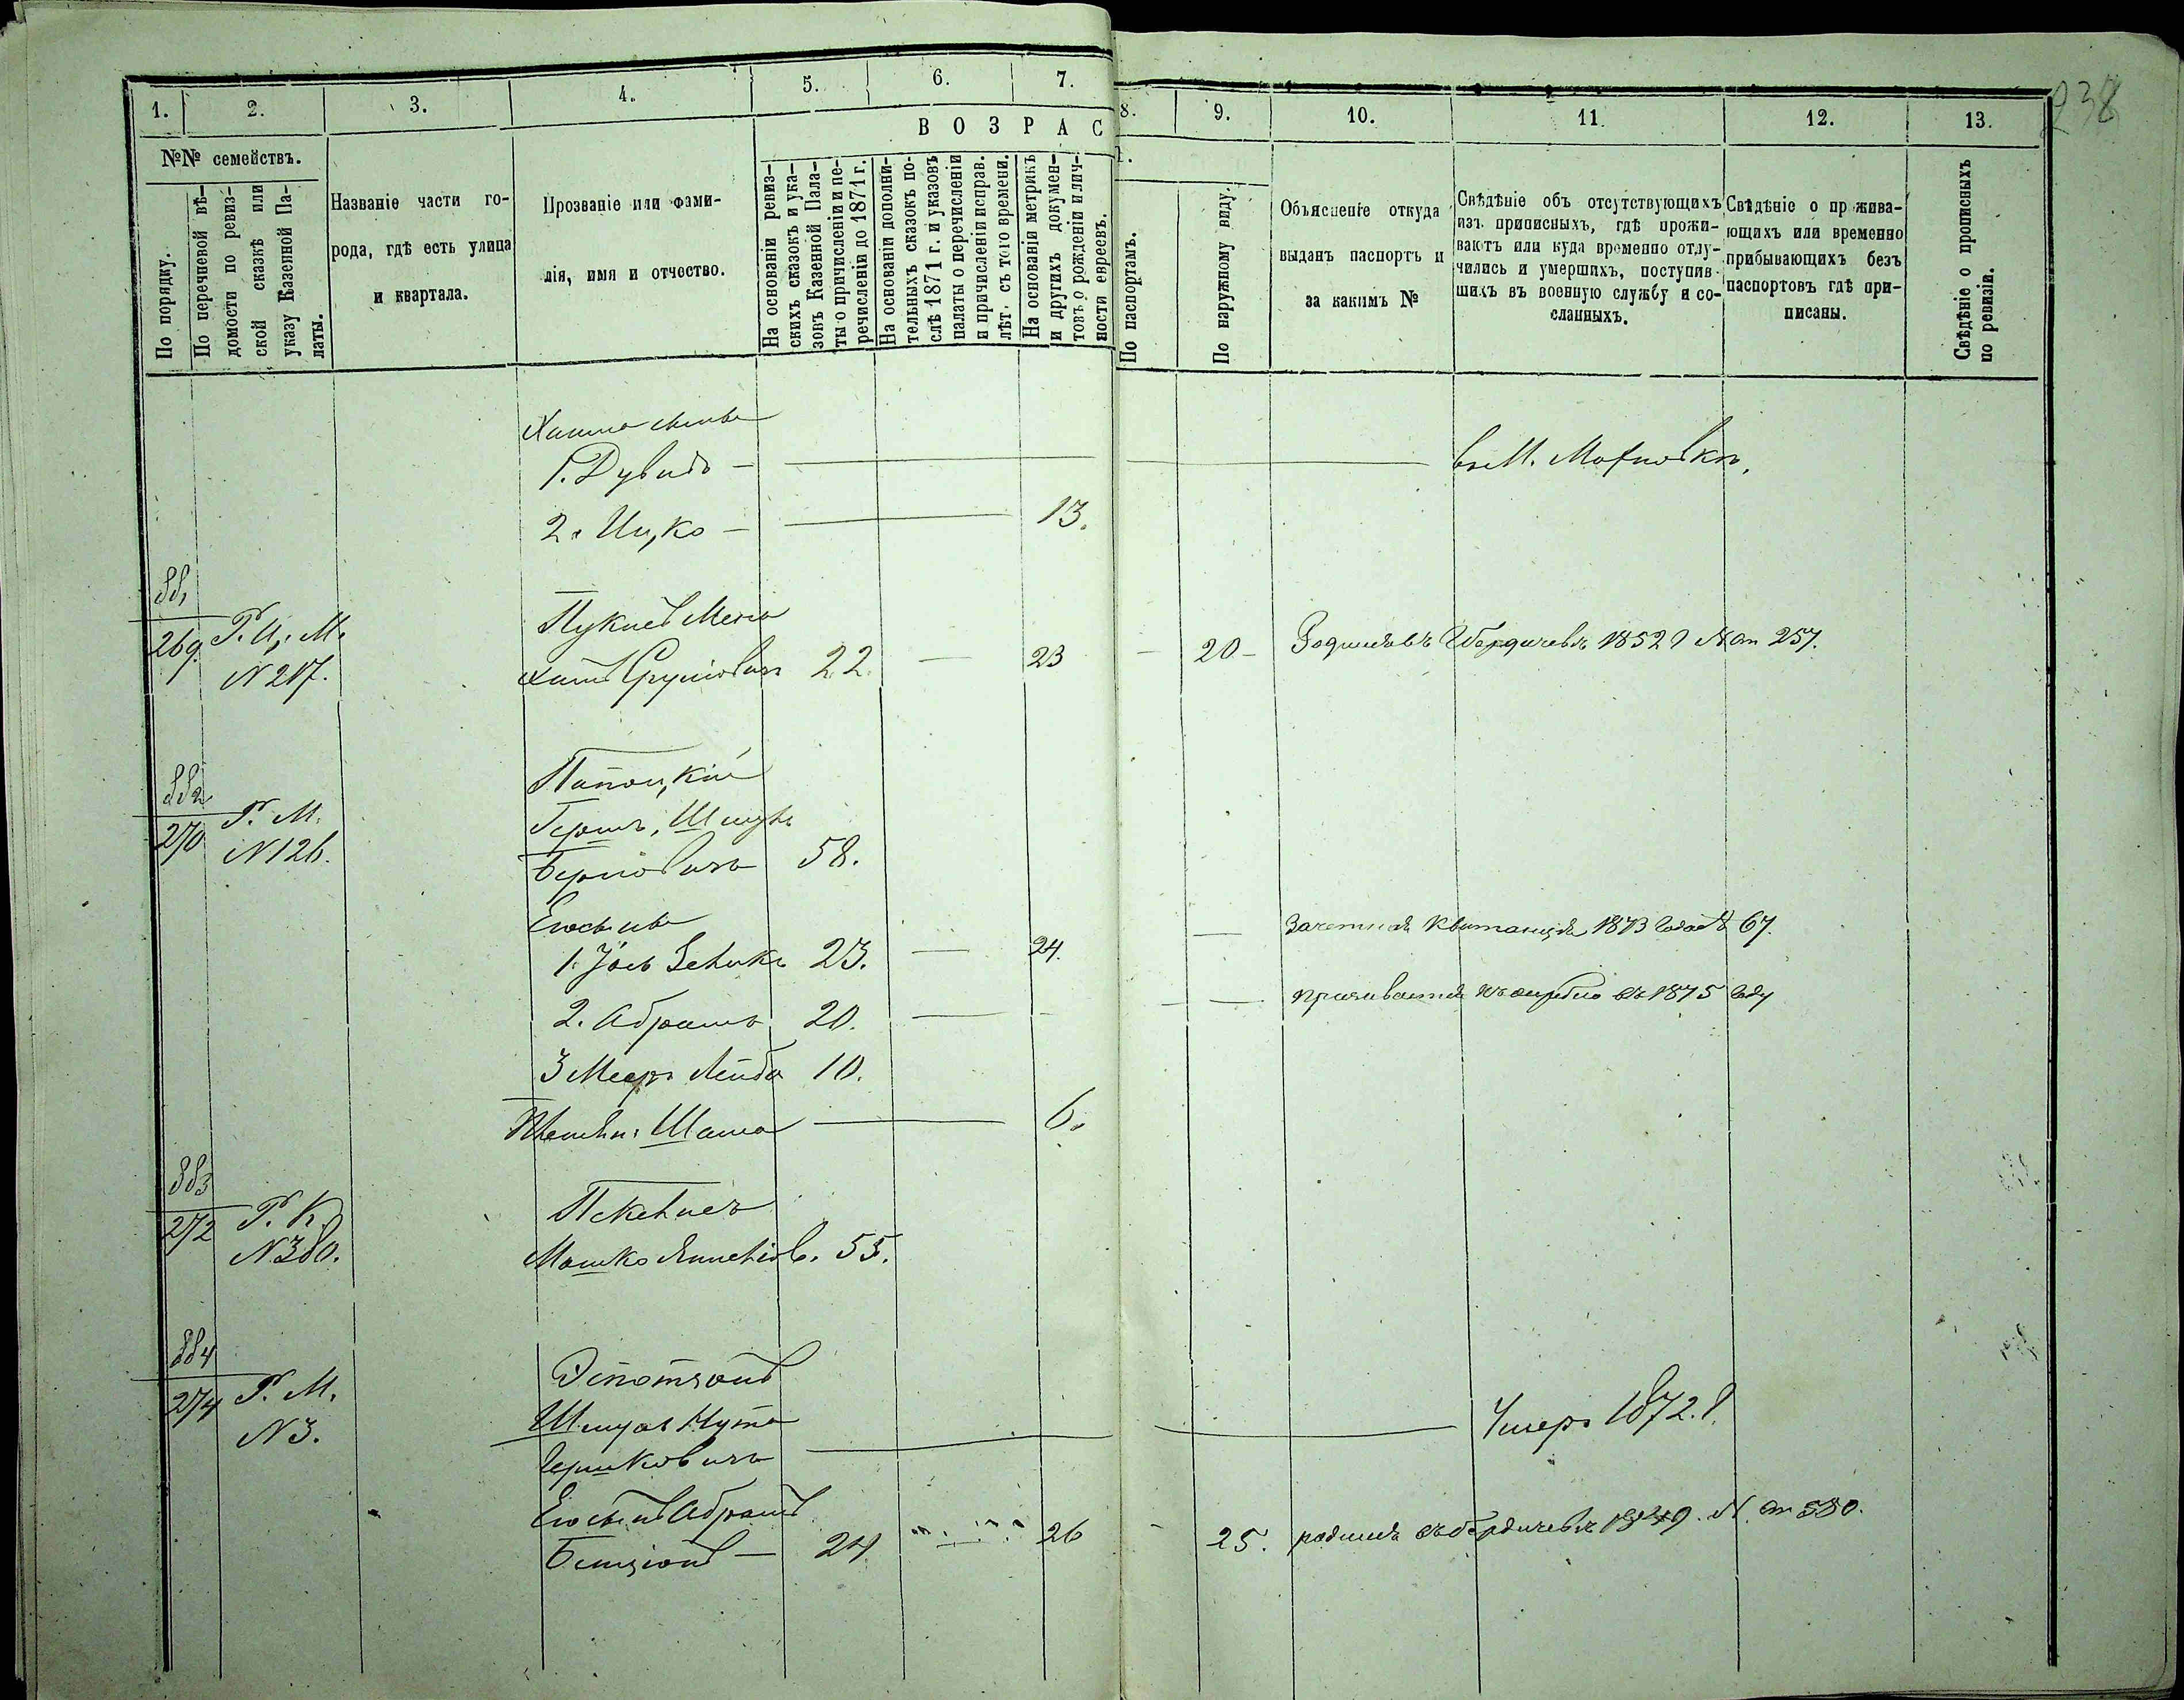 238
1. 2. 3. 4. 5. 6. 7. 8. 9. 10. 11. 12. 13.
ВОЗРАСТ.
№№ семействъ.
По порядку.
По перечневой вѣ-
домости по ревиз-
ской сказкѣ или
указу Казенной Па-
латы.
Названіе части го-
рода, гдѣ есть улица
и квартала.
Прозваніе или фами-
лія, имя и отчество.
На основаніи ревиз-
скихъ сказокъ и ука-
зовъ Казенной Пала-
ты о причисленіи и пе-
речисленіи до 1871 г.
На основаніи дополни-
тельныхъ сказокъ по-
слѣ 1871 г. и указовъ
палаты о перечисленіи
и причисленіи исправ.
лѣт. съ того времени.
На основаніи метрикъ
и другихъ докумен-
товъ о рожденіи и лич-
ности евреевъ.
По паспортамъ.
По наружному виду.
Объясненіе откуда
выданъ паспортъ и
за какимъ №
Свѣдѣніе объ отсутствующихъ
изъ приписныхъ, гдѣ прожи-
ваютъ или куда временно отлу-
чились и умершихъ, поступив-
шихъ въ военную службу и со-
сланныхъ.
Свѣдѣніе о прожива-
ющихъ или временно
прибывающихъ безъ
паспортовъ гдѣ при-
писаны.
Свѣдѣніе о прописныхъ
по ревизіи.
Хаима сыновья
1. Дувидъ — въ М. Махновкѣ,
2. Ицко — 13.
881
269. Р. Ц. М.
N 217.
Хаимъ Сруліовичъ 22 — 23 — 20 — Родился въ Бердичевѣ 1852 г N от 257.
882
270 Р. М.
N 126.
Гершъ, Шмуль
Берковичъ 58.
Его сыновья
1. Іось Зеликъ 23. — 24. — Зачетная квитанція 1873 года N 67.
2. Абрамъ 20. — призывается къ жребію въ 1875 году
3 Мееръ Лейба 10.
Шама — 6.
883
272 Р. К.
N 380.
Мошко 55.
884
274 Р. М.
N 3.
Шмуль Нута — Умеръ 1872. г.
Гершковичъ
Его сынъ Абрамъ
Бенціонъ — 24 — 26 — 25. родился въ Бердичевѣ 1849. N. от 580.